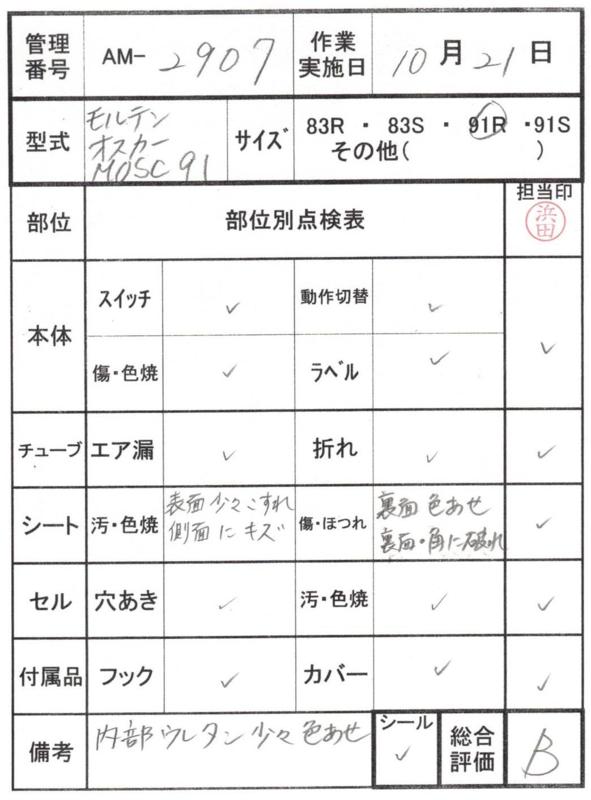 管理番号 AM- 2907 作業実施日 10月21日
型式 モルテン オスカー MOSC 91 サイズ 83R ・ 83S ・ 91R ・91S
その他( )
部位 部位別点検表 担当印 浜田
本体 スイッチ ✓ 動作切替 ✓ ✓
傷・色焼 ✓ ラベル ✓
チューブ エア漏 ✓ 折れ ✓ ✓
シート 汚・色焼 表面少々こすれ 側面にキズ 傷・ほつれ 裏面色あせ 裏面・角に破れ ✓
セル 穴あき ✓ 汚・色焼 ✓ ✓
付属品 フック ✓ カバー ✓ ✓
備考 内部ウレタン少々色あせ シール ✓ 総合評価 B